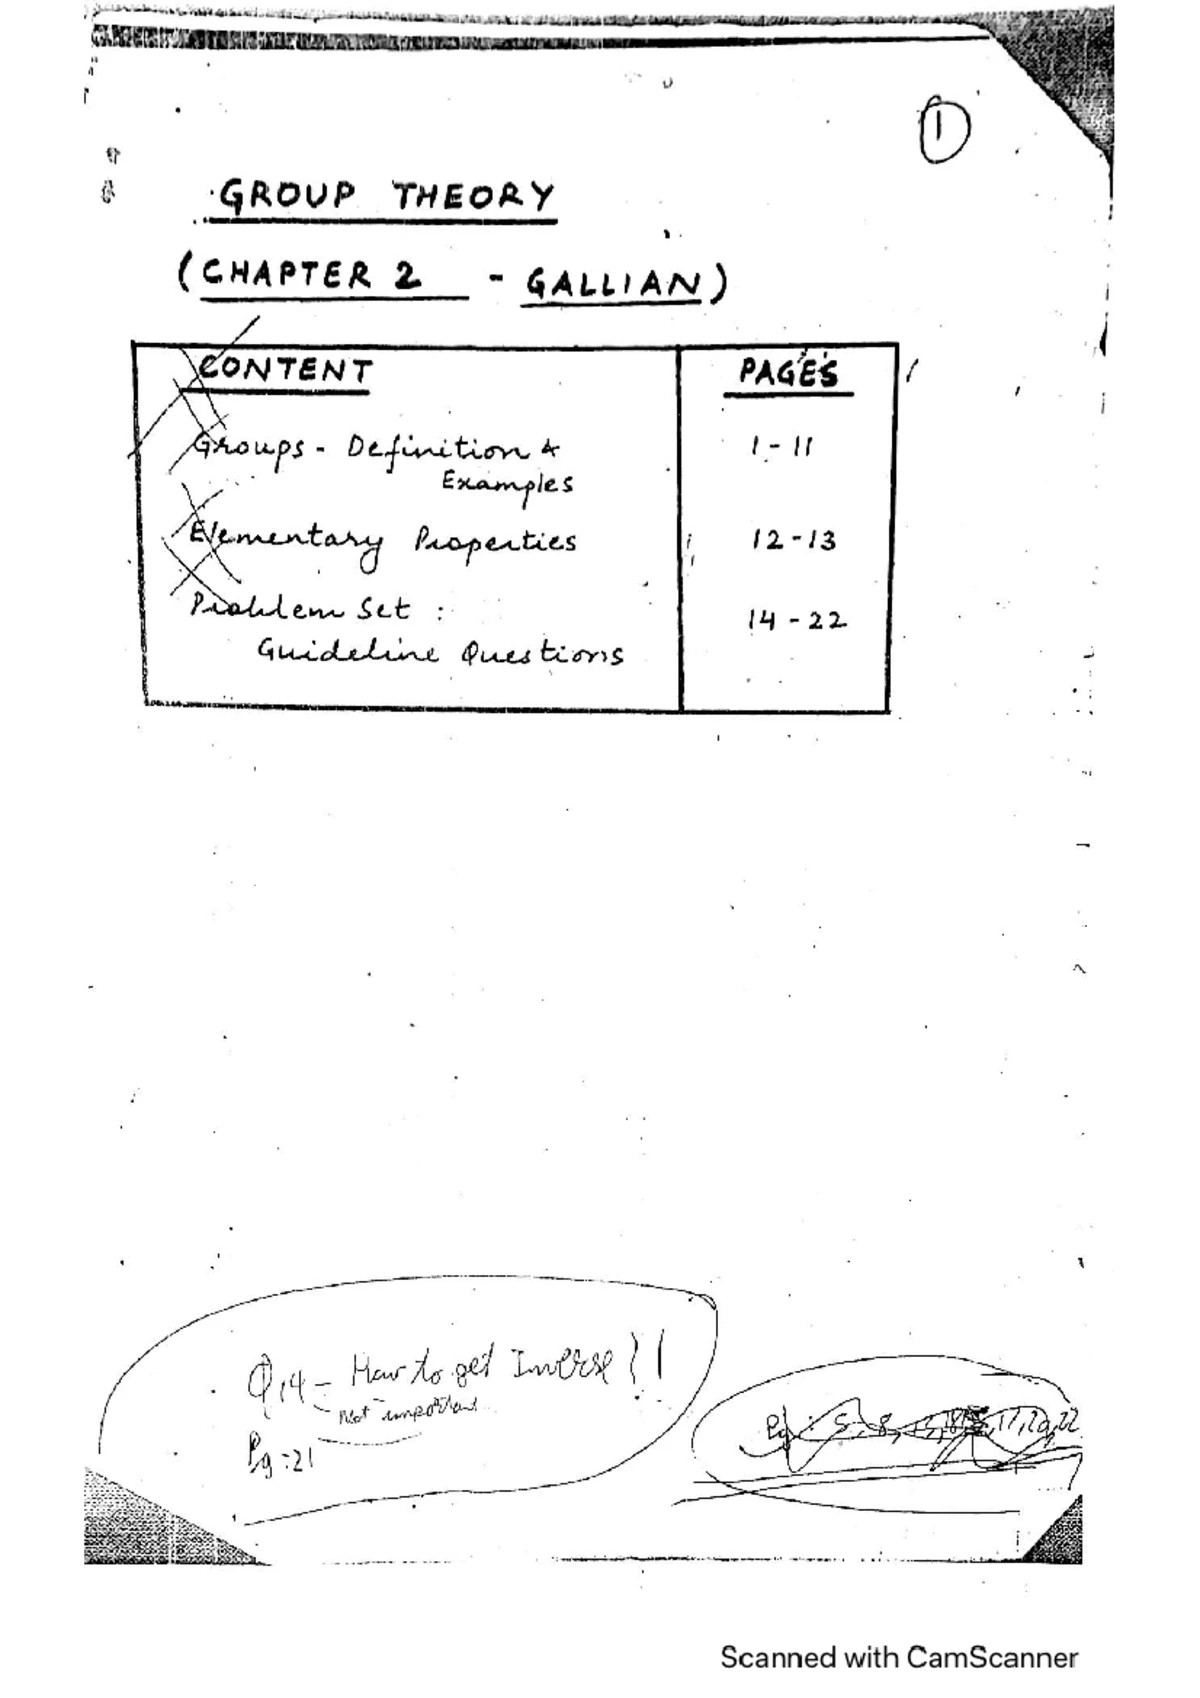 1
GROUP THEORY
(CHAPTER 2 - GALLIAN)
CONTENT PAGES
Groups - Definition & 1 - 11
Examples
Elementary Properties 12 - 13
Problem Set : 14 - 22
Guideline Questions
Q.14 - How to get Inverse
Not important
Pg :21
Pg : 5, 8,
Scanned with CamScanner